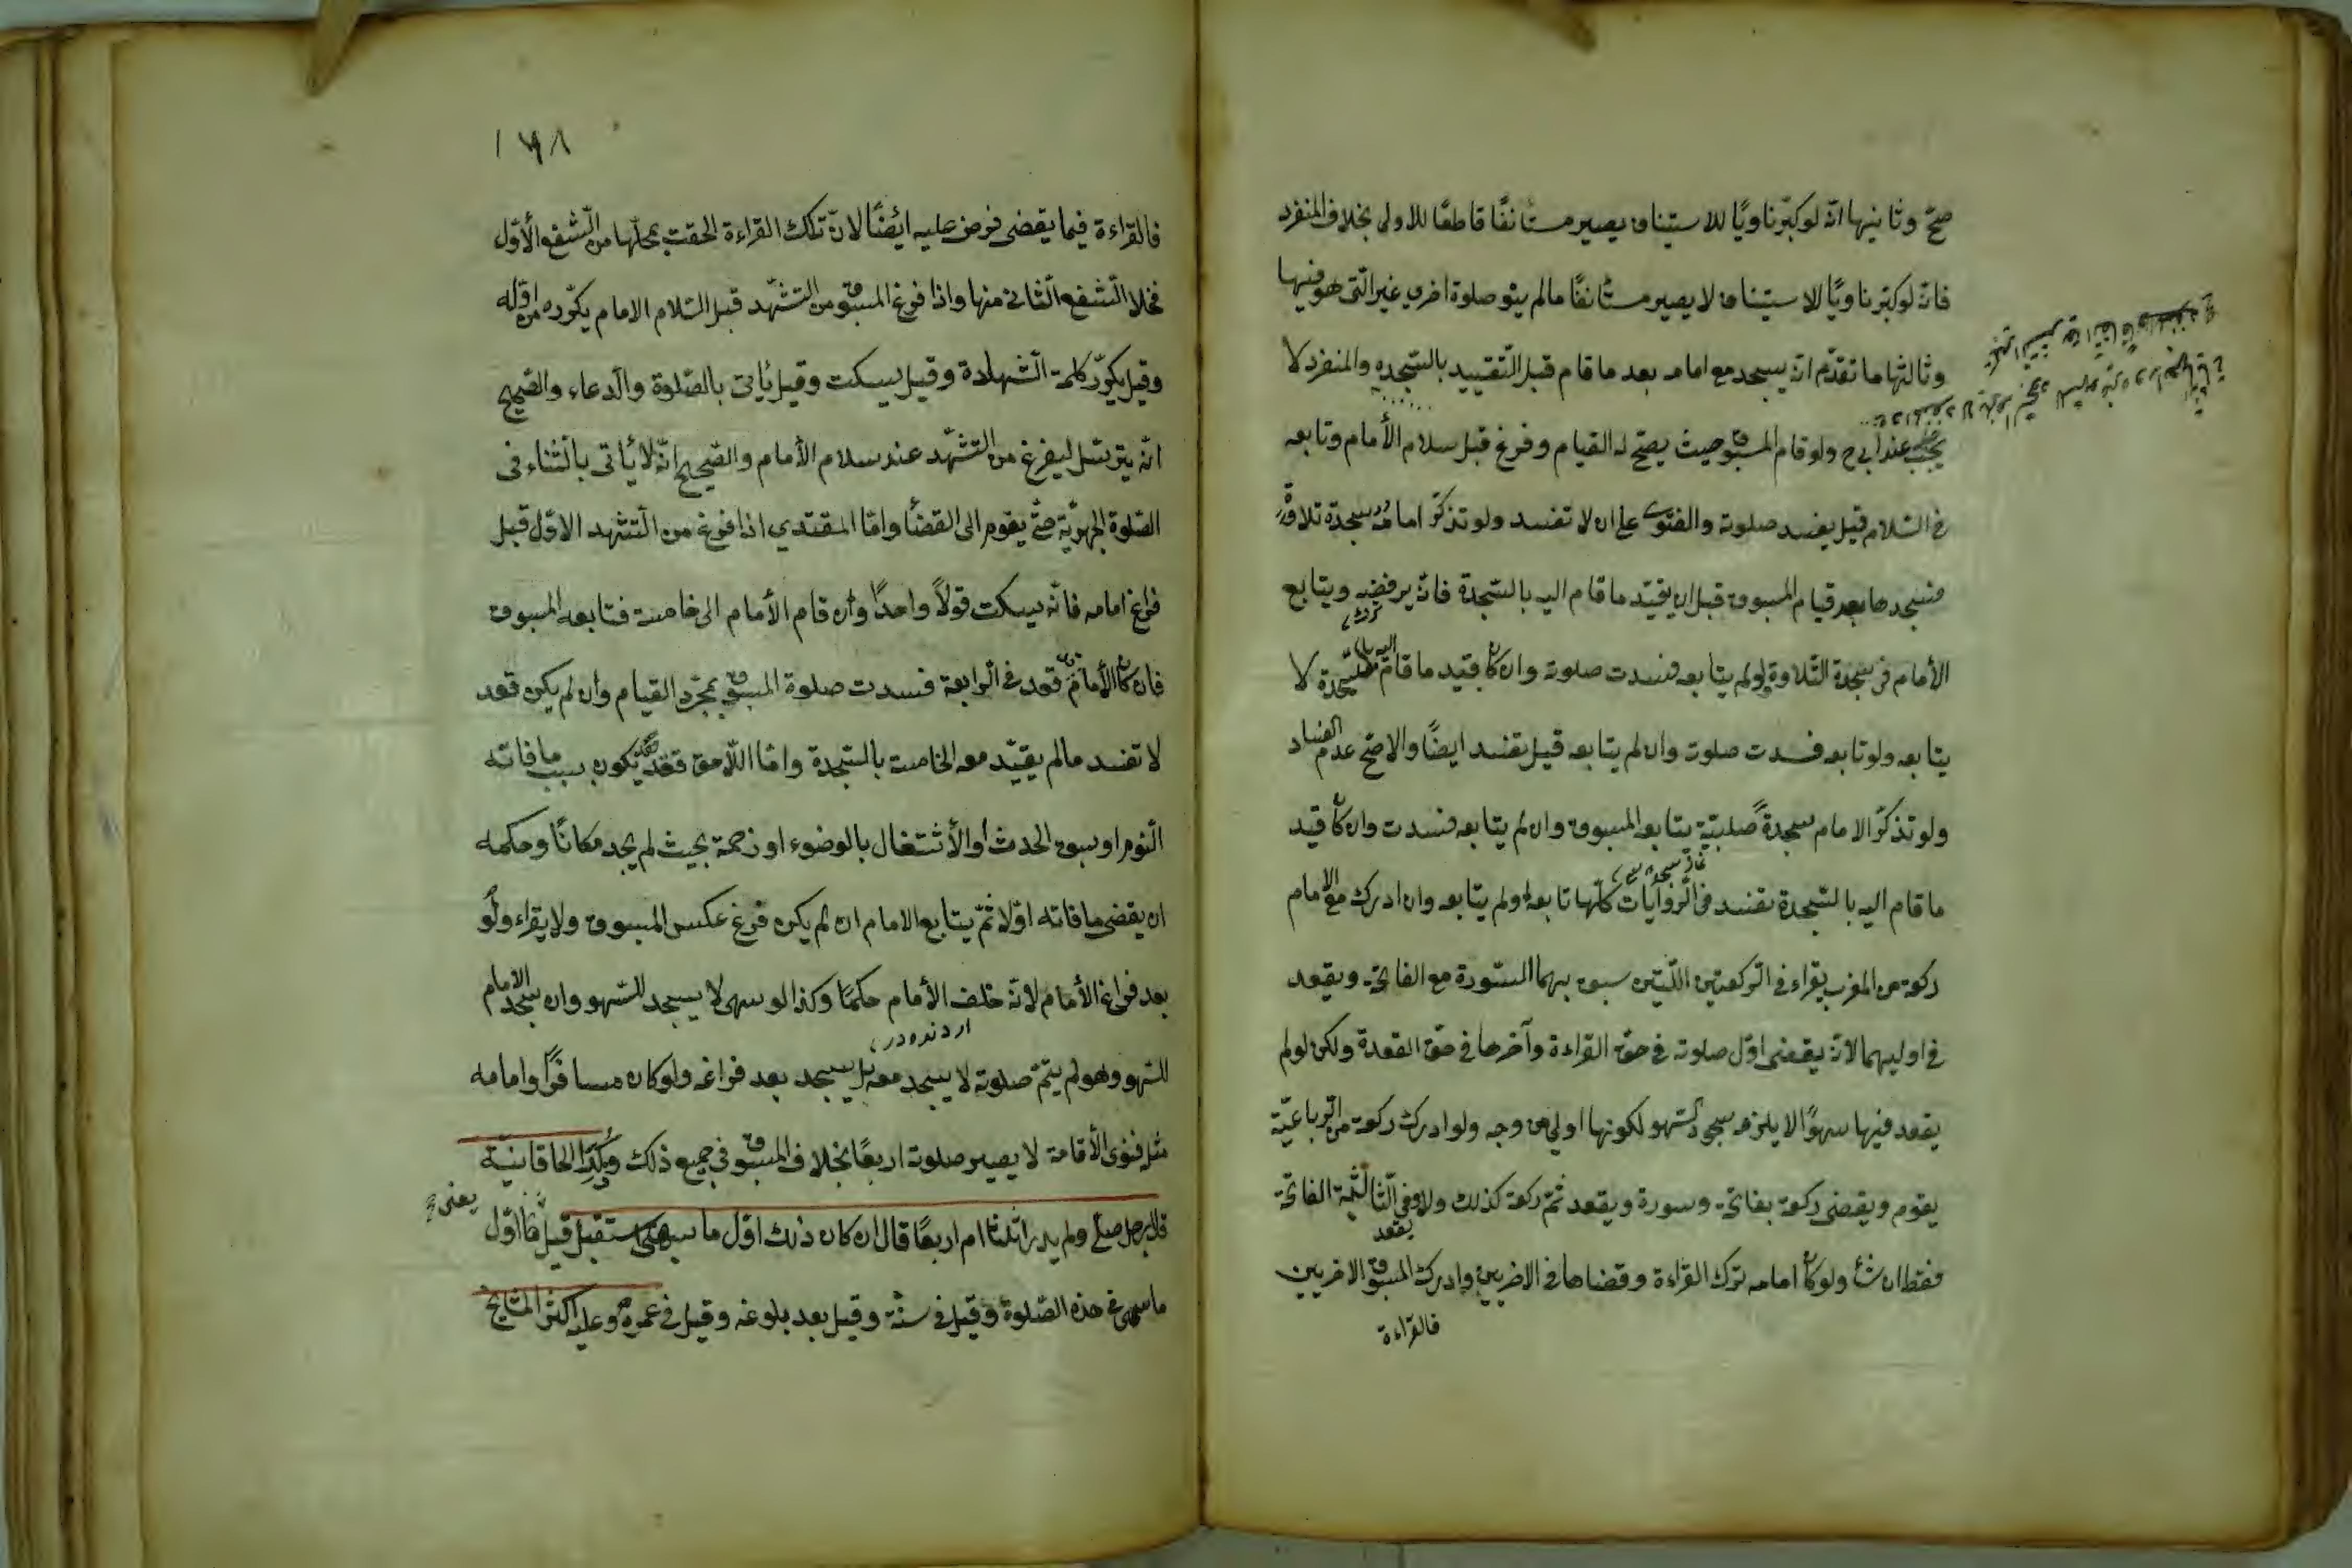 صحّ وثانيها انّه لو كبّر ناويًا للاستيناف يصير مستأنفًا قاطعًا للاولى بخلاف المنفرد
فانّه لو كبّر ناويًا للاستيناف لا يصير مستأنفًا مالم ينو صلوة اخرى غير الّتى هو فيها
وثالثها ما تقدّم انّه يسجد مع امامه بعد ما قام قبل التّقييد بالسّجده والمنفرد لا
يجب عند ابى ح ولو قام المسبوق حيث يصحّ له القيام وفرغ قبل سلام الأمام وتابعه
فى السّلام قيل يفسد صلوته والفتوى على ان لا تفسد ولو تذكّر امامه سجدة تلاوة
فسجدها بعد قيام المسبوق قبل ان يقيّد ما قام اليه بالسّجدة فانّه يرفضه ويتابع
ترك
الأمام فى سجدة التّلاوة ولو لم يتابعه فسدت صلوته وان كان قيّد ما قام اليه بالسّجدة لا
يتابعه ولو تابعه فسدت صلوته وان لم يتابعه قيل تفسد ايضًا والاصحّ عدم الفساد
ولو تذكّر الامام سجدةً صلبيّة يتابعه المسبوق وان لم يتابعه فسدت وان كان قيد
ما قام اليه بالسّجدة تفسد فى الرّوايات كلّها تابعه او لم يتابعه وان ادرك مع الامام
ركعة من المغرب يقراء فى الرّكعتين اللّتين سبق بهما السّورة مع الفاتحة ويقعد
فى اوليهما لانّه يقضى اوّل صلوته فى حقّ القراءة وآخرها فى حقّ القعدة ولكن لو لم
يقعد فيها سهوًا لا يلزمه سجود السّهو لكونها اولى من وجه ولو ادرك ركعة من الرّباعيّة
يقوم ويقضى ركعة بفاتحة وسورة ويقعد ثمّ ركعة كذلك ولا يقعد وفى الثّالثة الفاتحة
فقط ان شاء ولو كان امامه ترك القراءة وقضاها فى الاخريين وادرك المسبوق الاخريين
فالقراءة
١٦٨
فالقراءة فيما يقضى فرض عليه ايضًا لانّ تلك القراءة الحقت بمحلّها من الشّفع الأوّل
فخلا الشّفع الثّانى منها واذا فرغ المسبوق من التشهّد قبل السّلام الامام يكرّره من اوّله
وقيل يكرّر كلمة الشّهادة وقيل يسكت وقيل يأتى بالصّلوة والدّعاء والصّحيح
انّه يترسّل ليفرغ من التّشهّد عند سلام الأمام والصّحيح انّه لا يأتى بالثّناء فى
الصّلوة الجهريّة حتّى يقوم الى القضاء وامّا المقتدى اذا فرغ من التّشهد الاوّل قبل
فراغ امامه فانّه يسكت قولاً واحدًا وان قام الأمام الى خامسة فتابعه المسبوق
فان كان الأمام قعد فى الرّابعة فسدت صلوة المسبوق بمجرّد القيام وان لم يكن قعد
لا تفسد مالم يقيّد معه الخامسة بالسّجدة وامّا اللّاحق فقد يكون بسبب ما فاته
النّوم او سبق الحدث او الأشتغال بالوضوء او زحمة بحيث لم يجد مكانًا وحكمه
ان يقضى ما فاته اوّلا ثمّ يتابع الامام ان لم يكن فرغ عكس المسبوق ولا يقراء ولو
بعد فراغ الأمام لانّه خلف الأمام حكمًا وكذا لو سهى لا يسجد للسّهو وان سجد الامام
للسّهو وهو لم يتمّ صلوته لا يسجد معه بل يسجد بعد فراغه ولو كان مسافرًا وامامه
مثله فنوى الأقامة لا يصير صلوته اربعًا بخلاف المسبوق فى جميع ذلك الخاقانيّة
يعنى
رجل صلّى ولم يدر اثلثا ام اربعًا قال ان كان ذلك اوّل ما سهى استقبل قيل اوّل
ما سهى فى هذه الصّلوة وقيل فى سنة وقيل بعد بلوغه وقيل فى عمره وعليه اكثر المشايخ